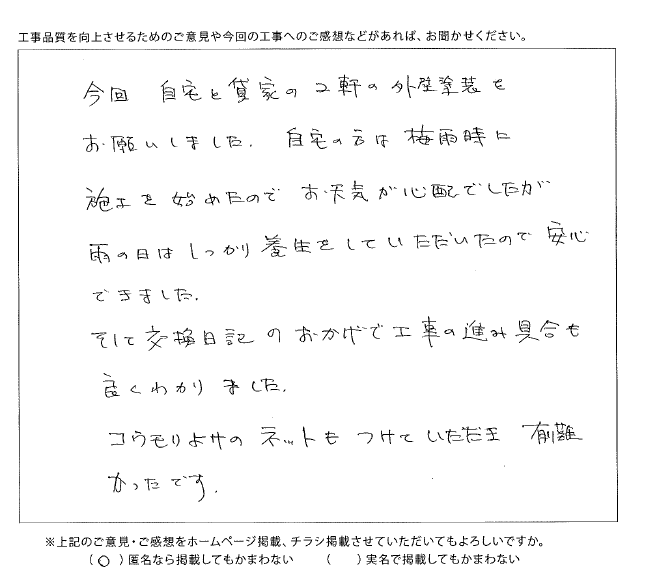 工事品質を向上させるためのご意見や今回の工事へのご感想などがあれば、お聞かせください。
今回 自宅と貸家の2軒の外壁塗装を
お願いしました. 自宅の方は梅雨時に
施工を始めたので お天気が心配でしたが
雨の日はしっかり養生をしていただいたので 安心
できました.
そして交換日記のおかげで工事の進み具合も
良くわかりました.
コウモリよけのネットもつけていただき 有難
かったです.
※上記のご意見・ご感想をホームページ掲載、チラシ掲載させていただいてもよろしいですか。
(○)匿名なら掲載してもかまわない ( )実名で掲載してもかまわない